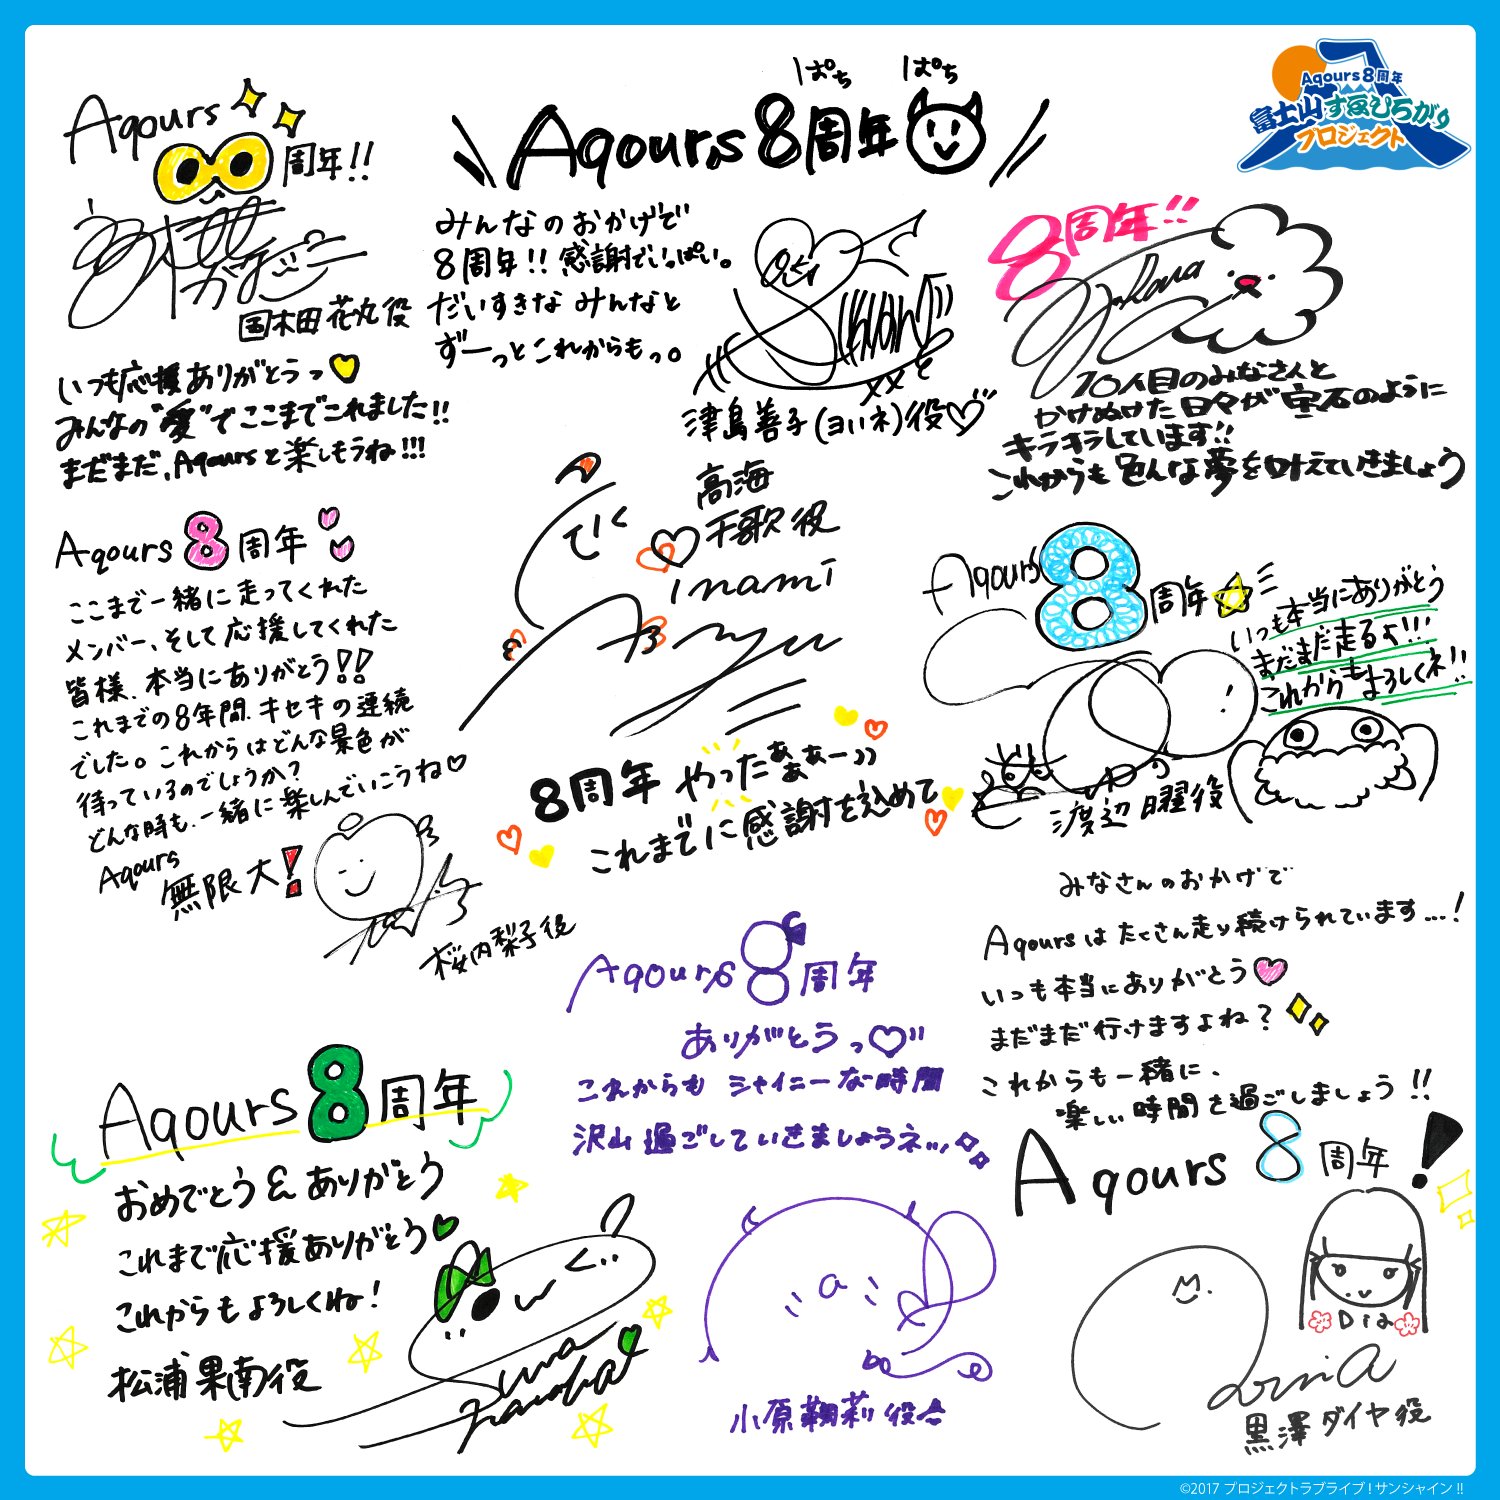 Aqours 8周年
富士山すゑひろがり
プロジェクト
Aqours
周年!!
国木田 花丸役
いつも応援ありがとうっ
みんなの"愛"でここまでこれました!!
まだまだ、Aqoursと楽しもうね!!!
ぱち ぱち
\ Aqours 8周年 /
みんなのおかげで
8周年!! 感謝でいっぱい。
だいすきな みんなと
ずーっとこれからもっ。
津島善子(ヨハネ)役♡
8周年!!
10人目のみなさんと
かけぬけた日々が宝石のように
キラキラしています!!
これからも色んな夢を叶えていきましょう
Aqours 8周年
ここまで一緒に走ってくれた
メンバー、そして応援してくれた
皆様、本当にありがとう!!
これまでの8年間、キセキの連続
でした。これからはどんな景色が
待っているのでしょうか?
どんな時も、一緒に楽しんでいこうね♡
Aqours
無限大!
桜内梨子役
高海
千歌役
inami
Anju
8周年 やったぁぁぁー))
これまでに感謝を込めて
Aqours 8周年☆
いつも本当にありがとう
まだまだ走るよ!!!
これからもよろしくネ!!
渡辺 曜役
みなさんのおかげで
Aqoursは たくさん走り続けられています...!
いつも本当にありがとう
まだまだ行けますよね?
これからも一緒に、
楽しい時間を過ごしましょう!!
Aqours 8周年!
Dia
黒澤ダイヤ役
Aqours 8周年
ありがとうっ♡
これからも シャイニーな時間
沢山過ごしていきましょうネ...
小原鞠莉役
Aqours 8周年
おめでとう&ありがとう
これまで応援ありがとう
これからもよろしくね!
松浦果南役
©2017 プロジェクトラブライブ!サンシャイン!!